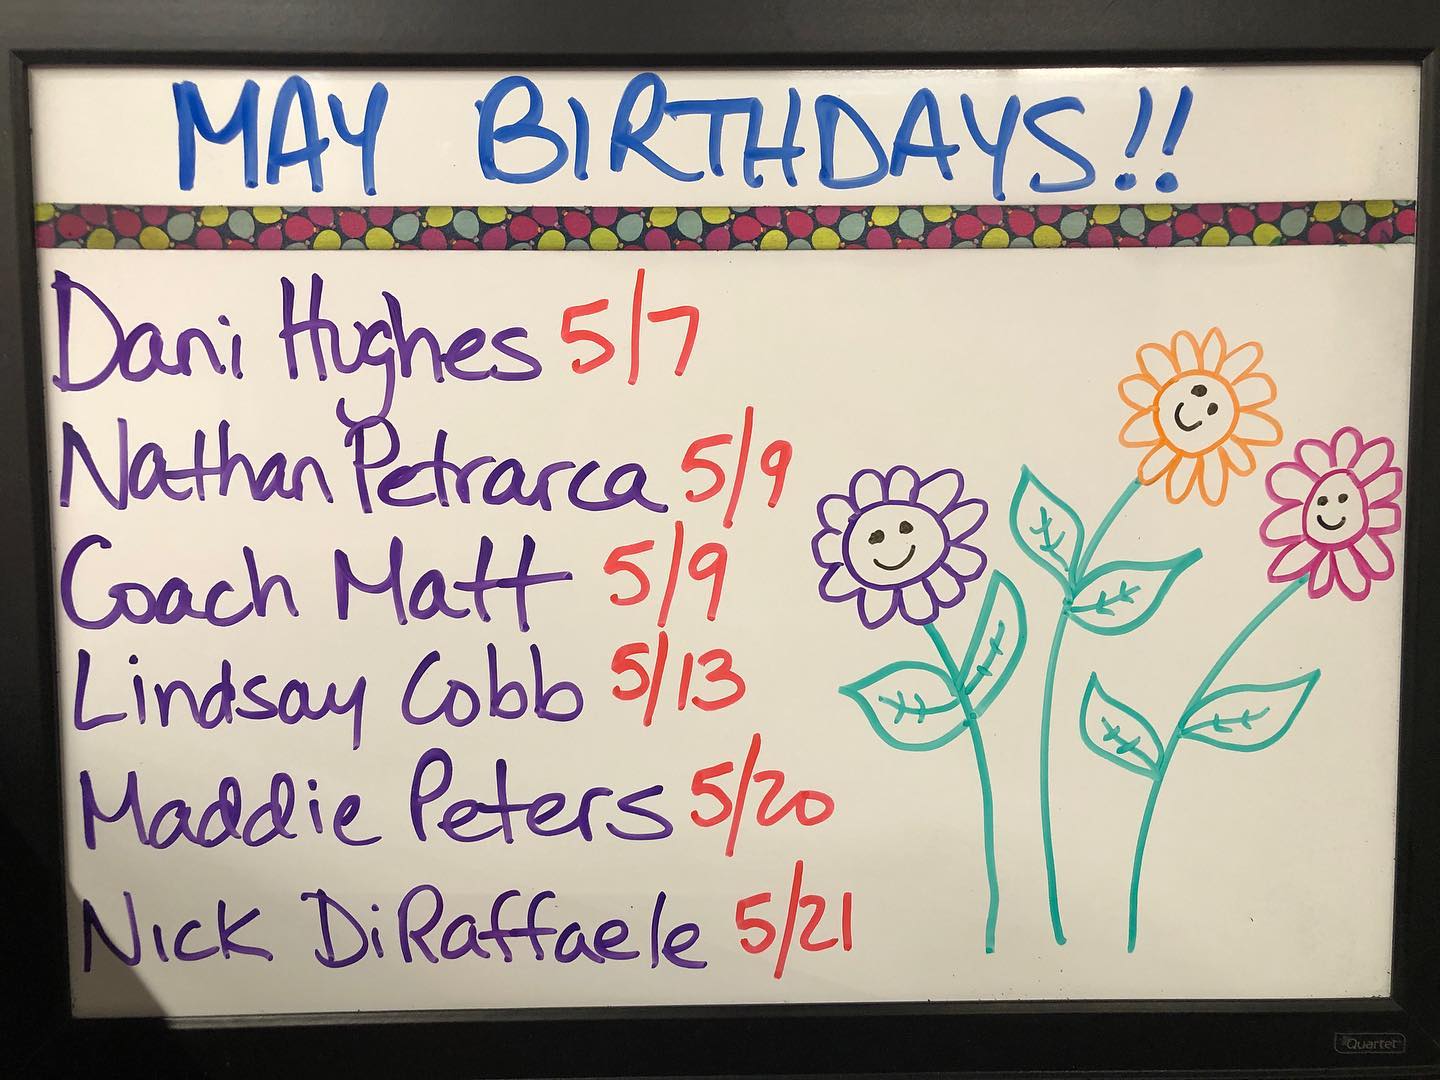 MAY BIRTHDAYS!!
Dani Hughes 5/7
Nathan Petrarca 5/9
Coach Matt 5/9
Lindsay Cobb 5/13
Maddie Peters 5/20
Nick DiRaffaele 5/21
Quartet